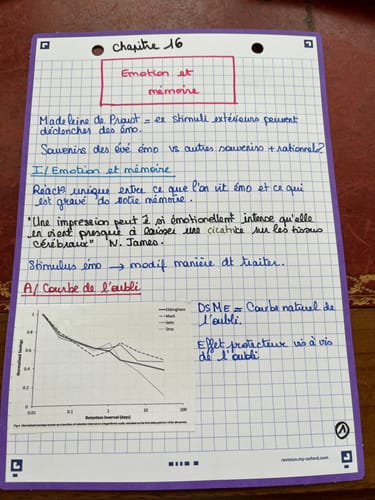 chapitre 16
Emotion et
mémoire
Madeleine de Proust = ex stimuli extérieurs peuvent
déclencher des émo.
Souvenirs des évé émo vs autres souvenirs + rationnels?
I/ Emotion et mémoire
Réacto unique entre ce que l'on vit émo et ce qui
est gravé ds notre mémoire.
"Une impression peut ê si émotionellent intense qu'elle
en vient presque à laisser une cicatrice sur les tissus
cérébraux" W. James.
Stimulus émo → modif manière dt traiter.
A/ Courbe de l'oubli
Normalized Savings
1
0.8
0.6
0.4
0.2
0
0.01
0.1
1
10
100
Retention Interval (days)
Ebbinghaus
Mack
Seitz
Dros
DSME = Courbe naturel de
l'oubli.
Effet protecteur vis à vis
de l'oubli
1
revision.my-oxford.com